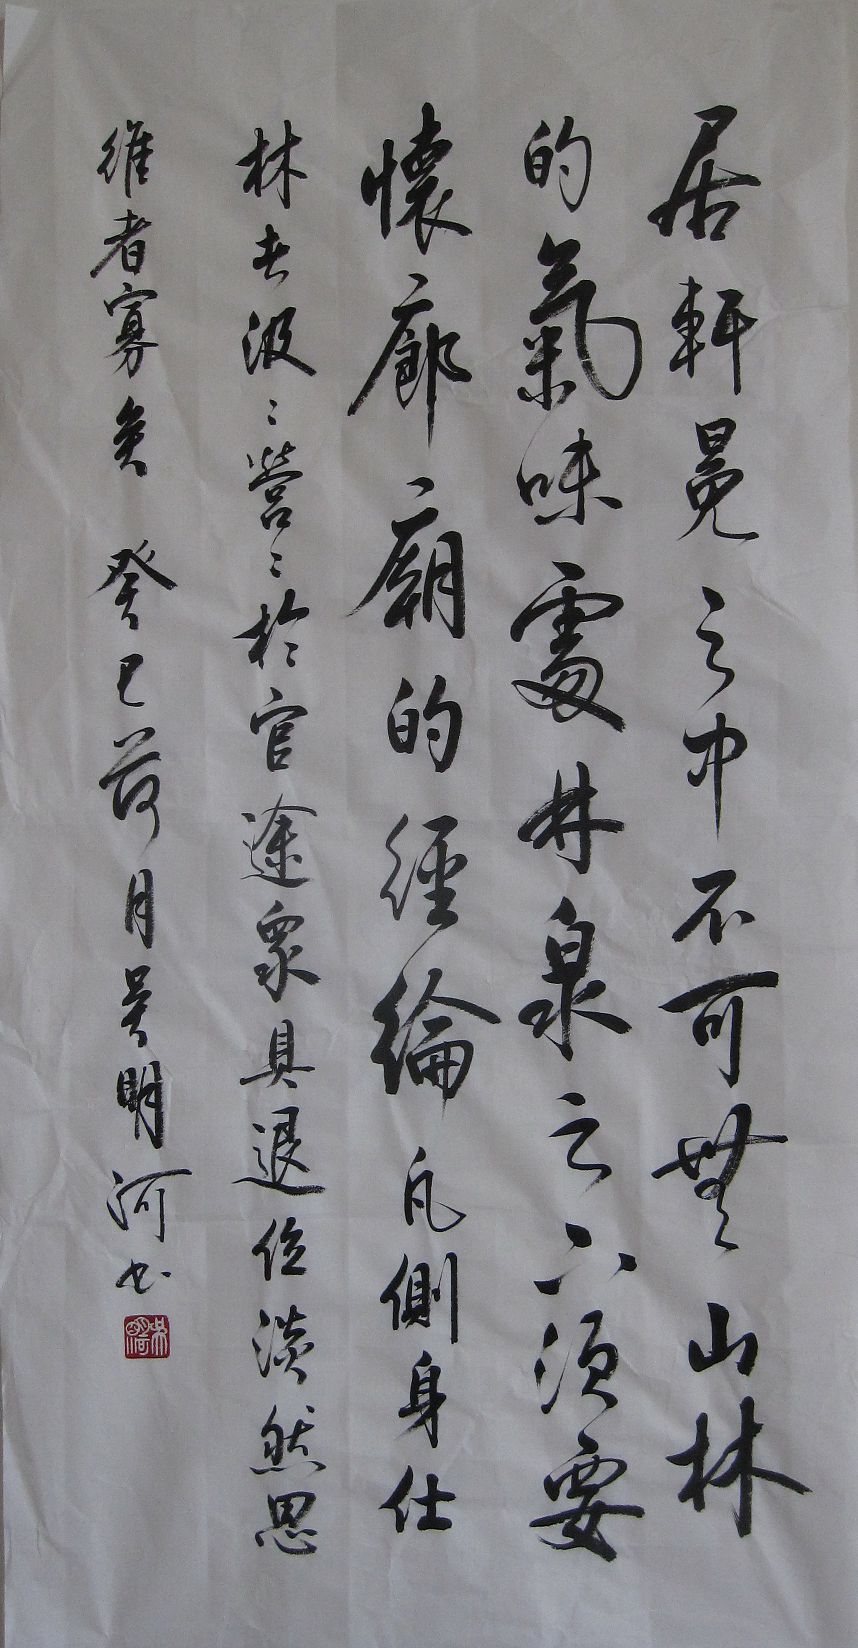 居軒冕之中不可無山林
的氣味處林泉之下須要
懷廊廟的經綸凡側身仕
林者汲〻營〻於官途眾具退位淡然思
維者寡矣 癸巳荷月吳明河書